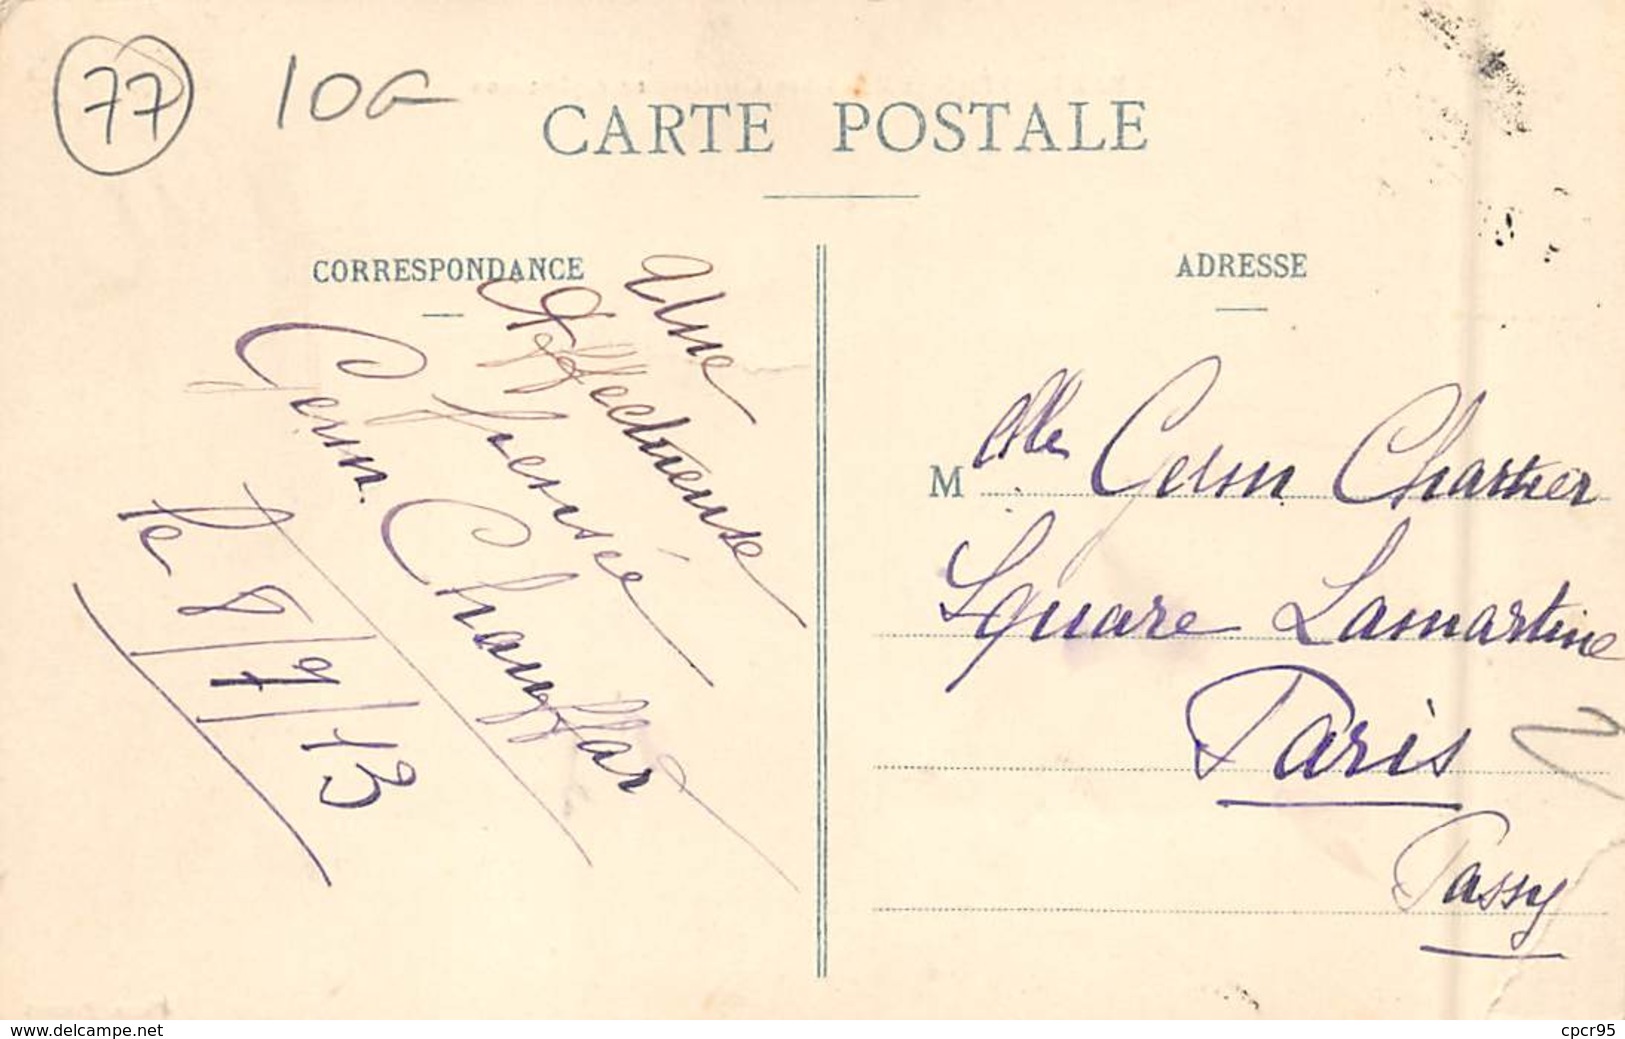 77 10G
CARTE POSTALE
CORRESPONDANCE
Une
Affectueuse
Pensée
Germ. Chauffar
le 8/9/13
ADRESSE
M elle Germ Chartier
Square Lamartine
Paris
Passy
www.delcampe.net
cpcr95